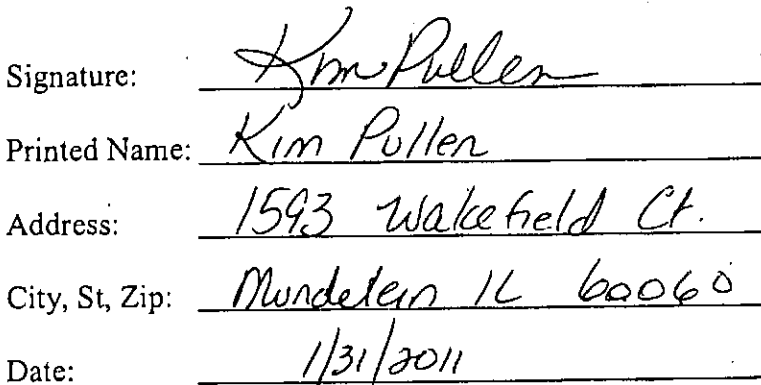 Signature: Kim Pullen
Printed Name: Kim Pullen
Address: 1593 Wakefield Ct.
City, St, Zip: Mundelein IL 60060
Date: 1/31/2011